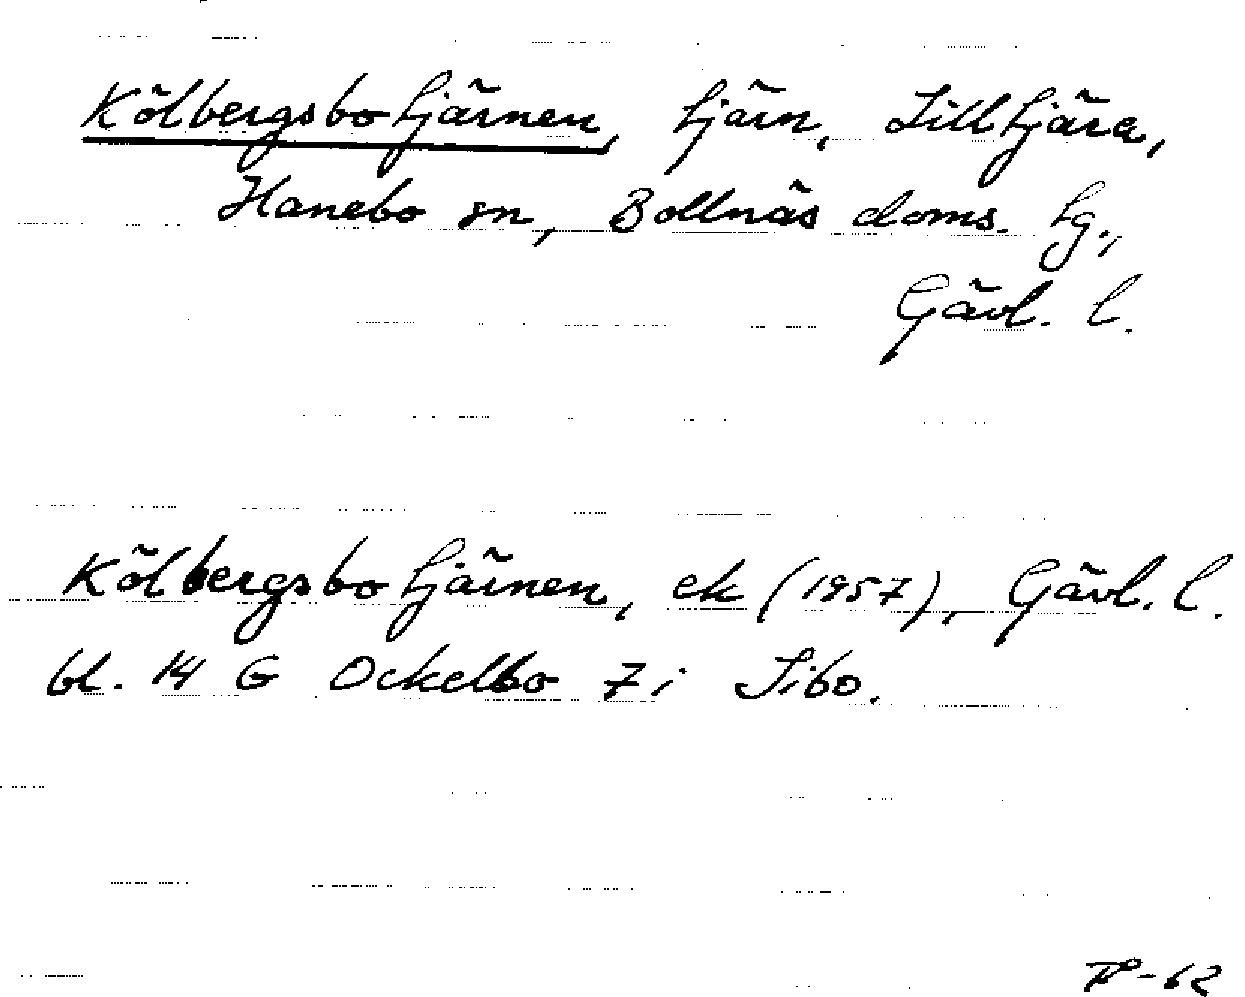 Kölbergsbotjärnen, tjärn, Lilltjära,
Hanebo sn, Bollnäs doms. tg.,
Gävl. l.
Kölbergsbotjärnen, ek (1957), Gävl. l.
bl. 14 G Ockelbo 7 i Sibo.